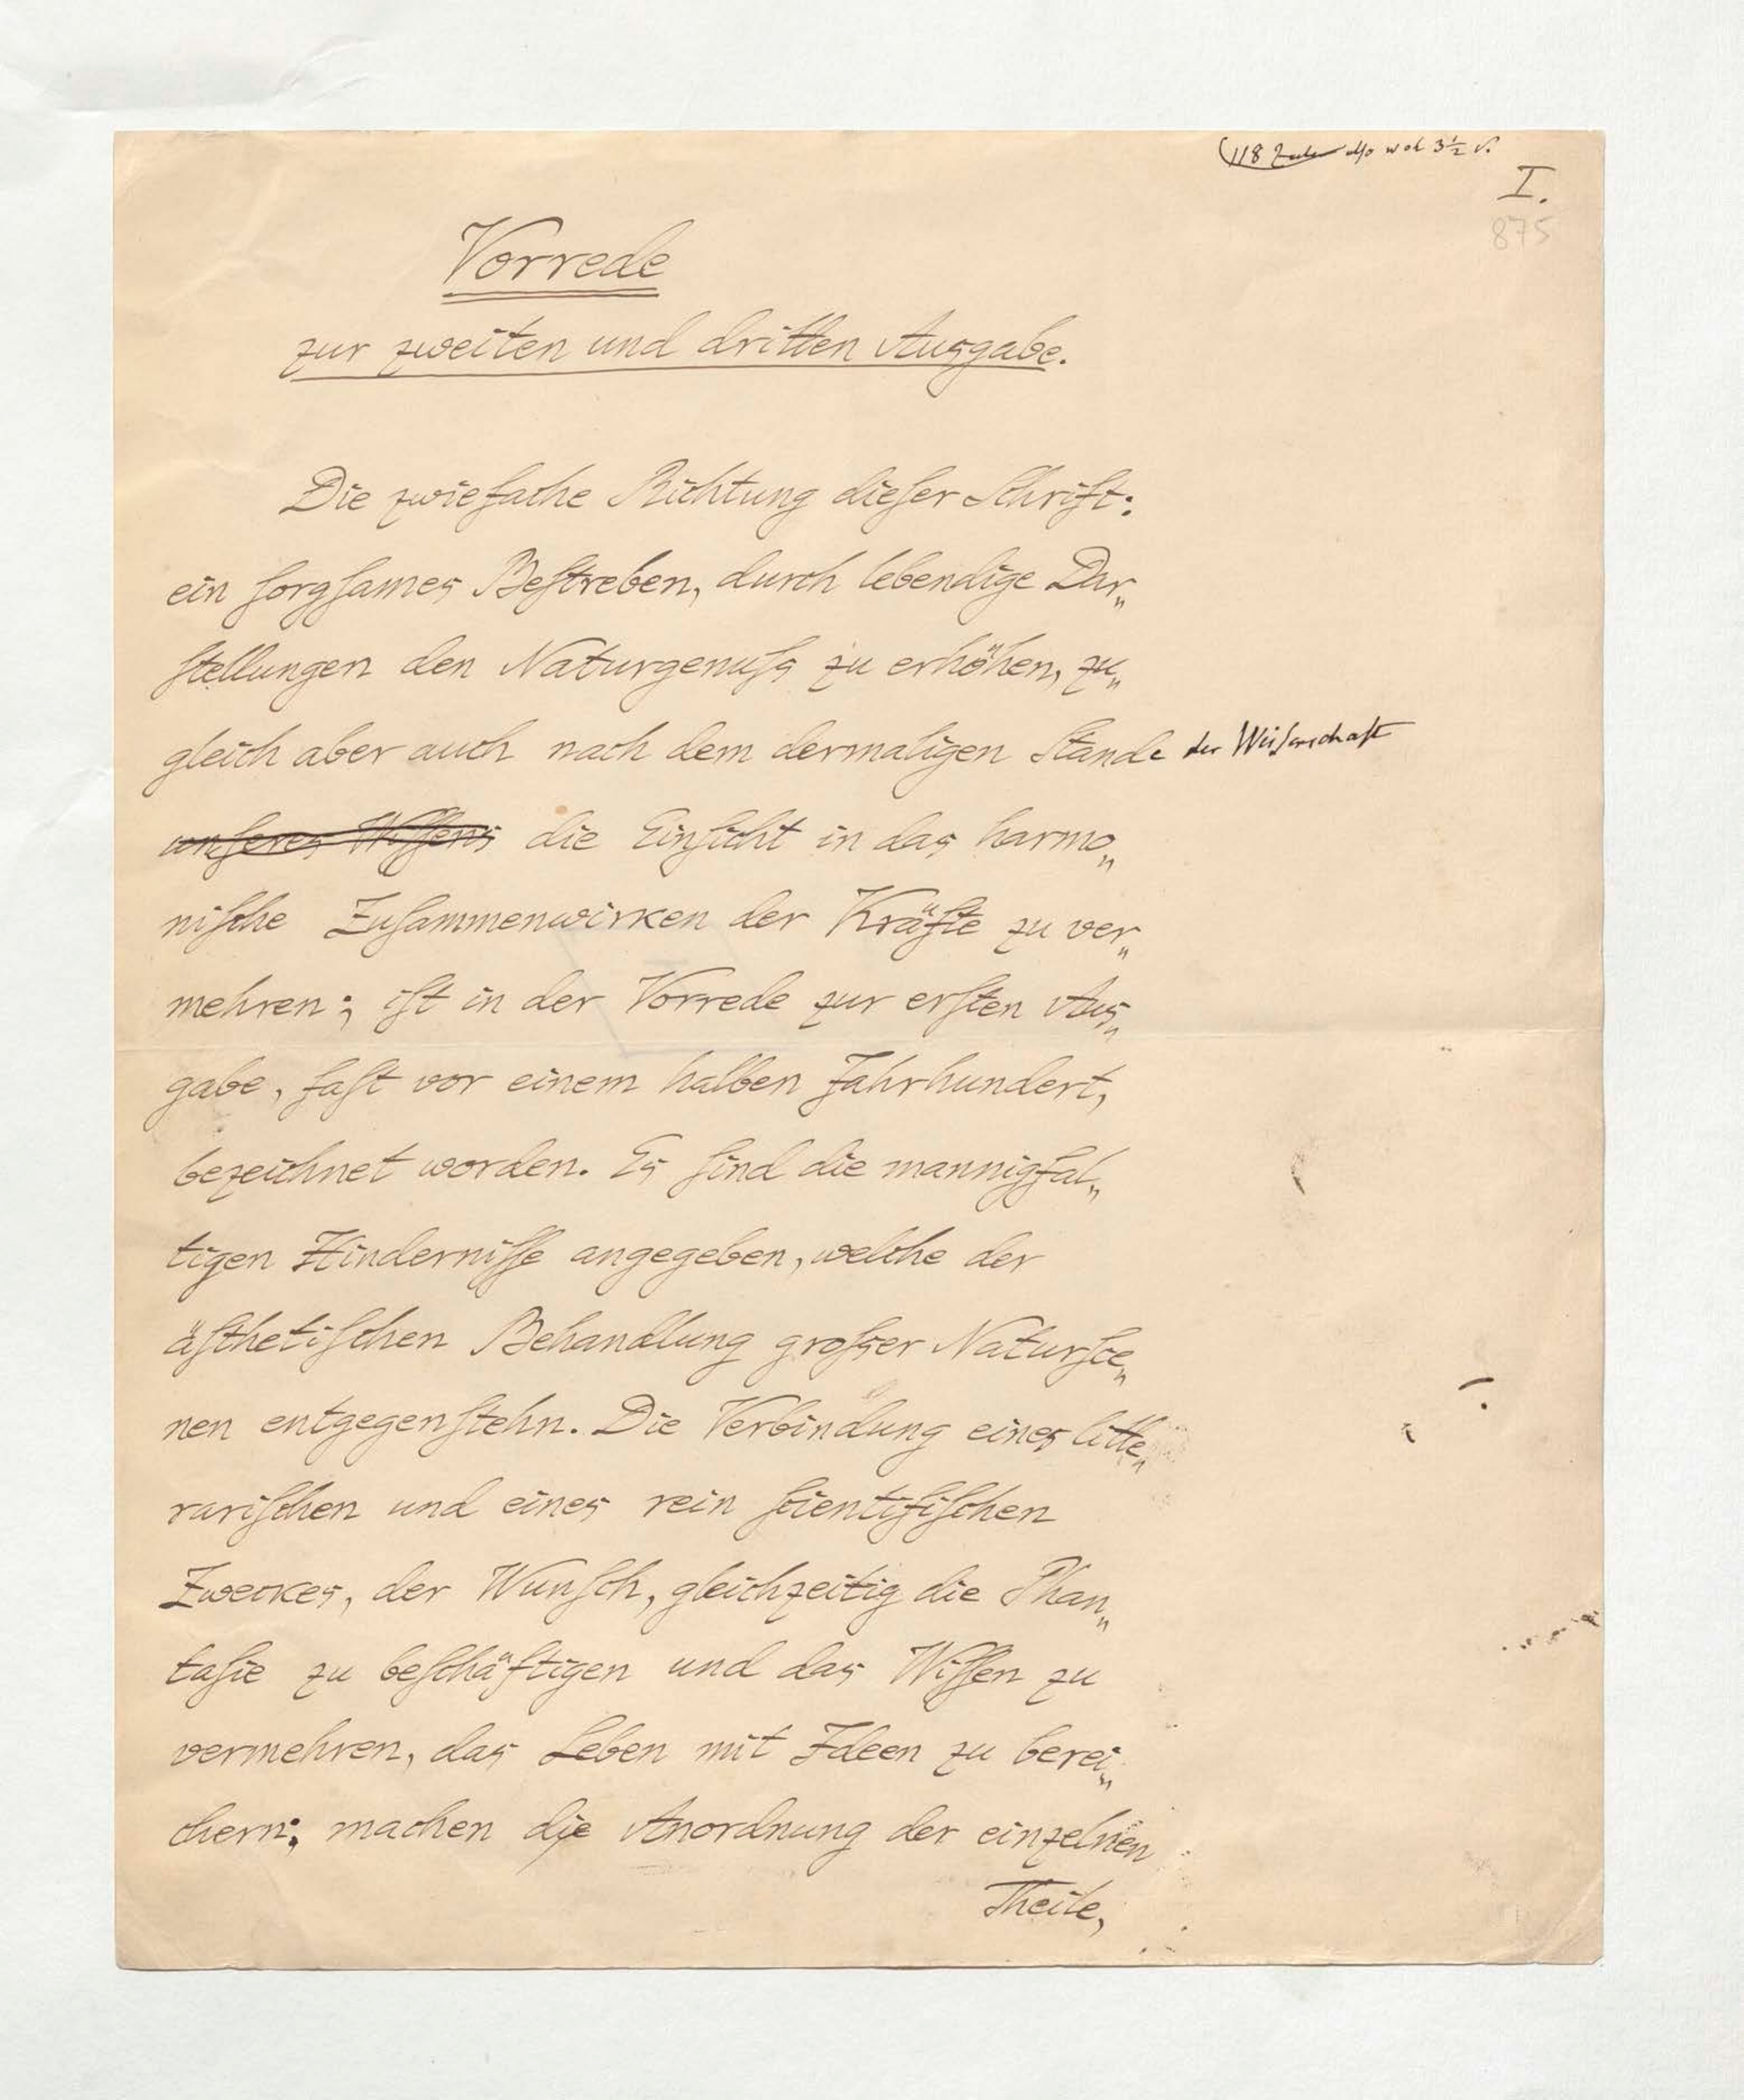 118 Zeilen also wol 3½ S.
I.
875
Vorrede
zur zweiten und dritten Ausgabe.
Die zwiefache Richtung dieſer Schrift:
ein ſorgſames Beſtreben, durch lebendige Dar„
ſtellungen den Naturgenuſs zu erhöhen, zu„
gleich aber auch nach dem dermaligen Stande der Wiſſenschaft
unſeres Wiſſens die Einſicht in das harmo„
niſche Zuſammenwirken der Kräfte zu ver„
mehren; iſt in der Vorrede zur erſten Aus„
gabe, faſt vor einem halben Jahrhundert,
bezeichnet worden. Es ſind die mannigfal„
tigen Hinderniſſe angegeben, welche der
äſthetiſchen Behandlung groſser Naturſce„
nen entgegenſtehn. Die Verbindung eines litte„
rariſchen und eines rein ſcientifiſchen
Zweckes, der Wunſch, gleichzeitig die Phan„
taſie zu beſchäftigen und das Wiſſen zu
vermehren, das Leben mit Ideen zu berei„
chern; machen die Anordnung der einzelnen
Theile,